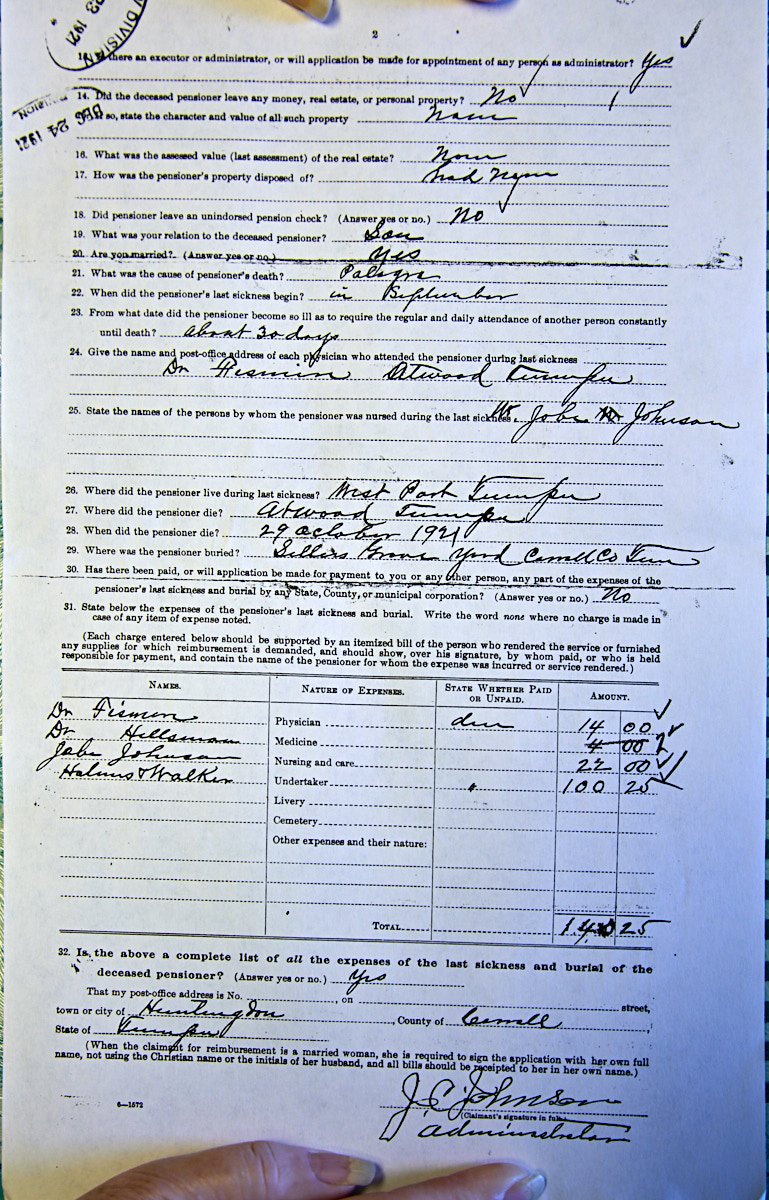 DIVISION
23 1921
2
13. Is there an executor or administrator, or will application be made for appointment of any person as administrator? Yes
DEC 24 1921
14. Did the deceased pensioner leave any money, real estate, or personal property? No
If so, state the character and value of all such property
16. What was the assessed value (last assessment) of the real estate?
17. How was the pensioner's property disposed of? had
18. Did pensioner leave an unindorsed pension check? (Answer yes or no.) No
19. What was your relation to the deceased pensioner? Son
20. Are you married? (Answer yes or no.) Yes
21. What was the cause of pensioner's death? Palagra
22. When did the pensioner's last sickness begin? in
23. From what date did the pensioner become so ill as to require the regular and daily attendance of another person constantly
until death? about 30 days
24. Give the name and post-office address of each physician who attended the pensioner during last sickness
Dr Atwood
25. State the names of the persons by whom the pensioner was nursed during the last sickness. Johnson
26. Where did the pensioner live during last sickness? West Port
27. Where did the pensioner die? Atwood
28. When did the pensioner die? 29 October 1921
29. Where was the pensioner buried? Sellers Grove Yard Carroll Co Tenn
30. Has there been paid, or will application be made for payment to you or any other person, any part of the expenses of the
pensioner's last sickness and burial by any State, County, or municipal corporation? (Answer yes or no.) No
31. State below the expenses of the pensioner's last sickness and burial. Write the word none where no charge is made in
case of any item of expense noted.
(Each charge entered below should be supported by an itemized bill of the person who rendered the service or furnished
any supplies for which reimbursement is demanded, and should show, over his signature, by whom paid, or who is held
responsible for payment, and contain the name of the pensioner for whom the expense was incurred or service rendered.)
NAMES. NATURE OF EXPENSES. STATE WHETHER PAID OR UNPAID. AMOUNT.
Dr Physician due 14 00
Dr Hillsman Medicine 4 00
Jobe Johnson Nursing and care 22 00
Holmes & Walker Undertaker " 100 25
Livery
Cemetery
Other expenses and their nature:
TOTAL 25
32. Is the above a complete list of all the expenses of the last sickness and burial of the
deceased pensioner? (Answer yes or no.) Yes
That my post-office address is No. , on street,
town or city of Huntingdon , County of Carroll ,
State of
(When the claimant for reimbursement is a married woman, she is required to sign the application with her own full
name, not using the Christian name or the initials of her husband, and all bills should be receipted to her in her own name.)
6—1572
J. C. Johnson
(Claimant's signature in full.)
Administrator